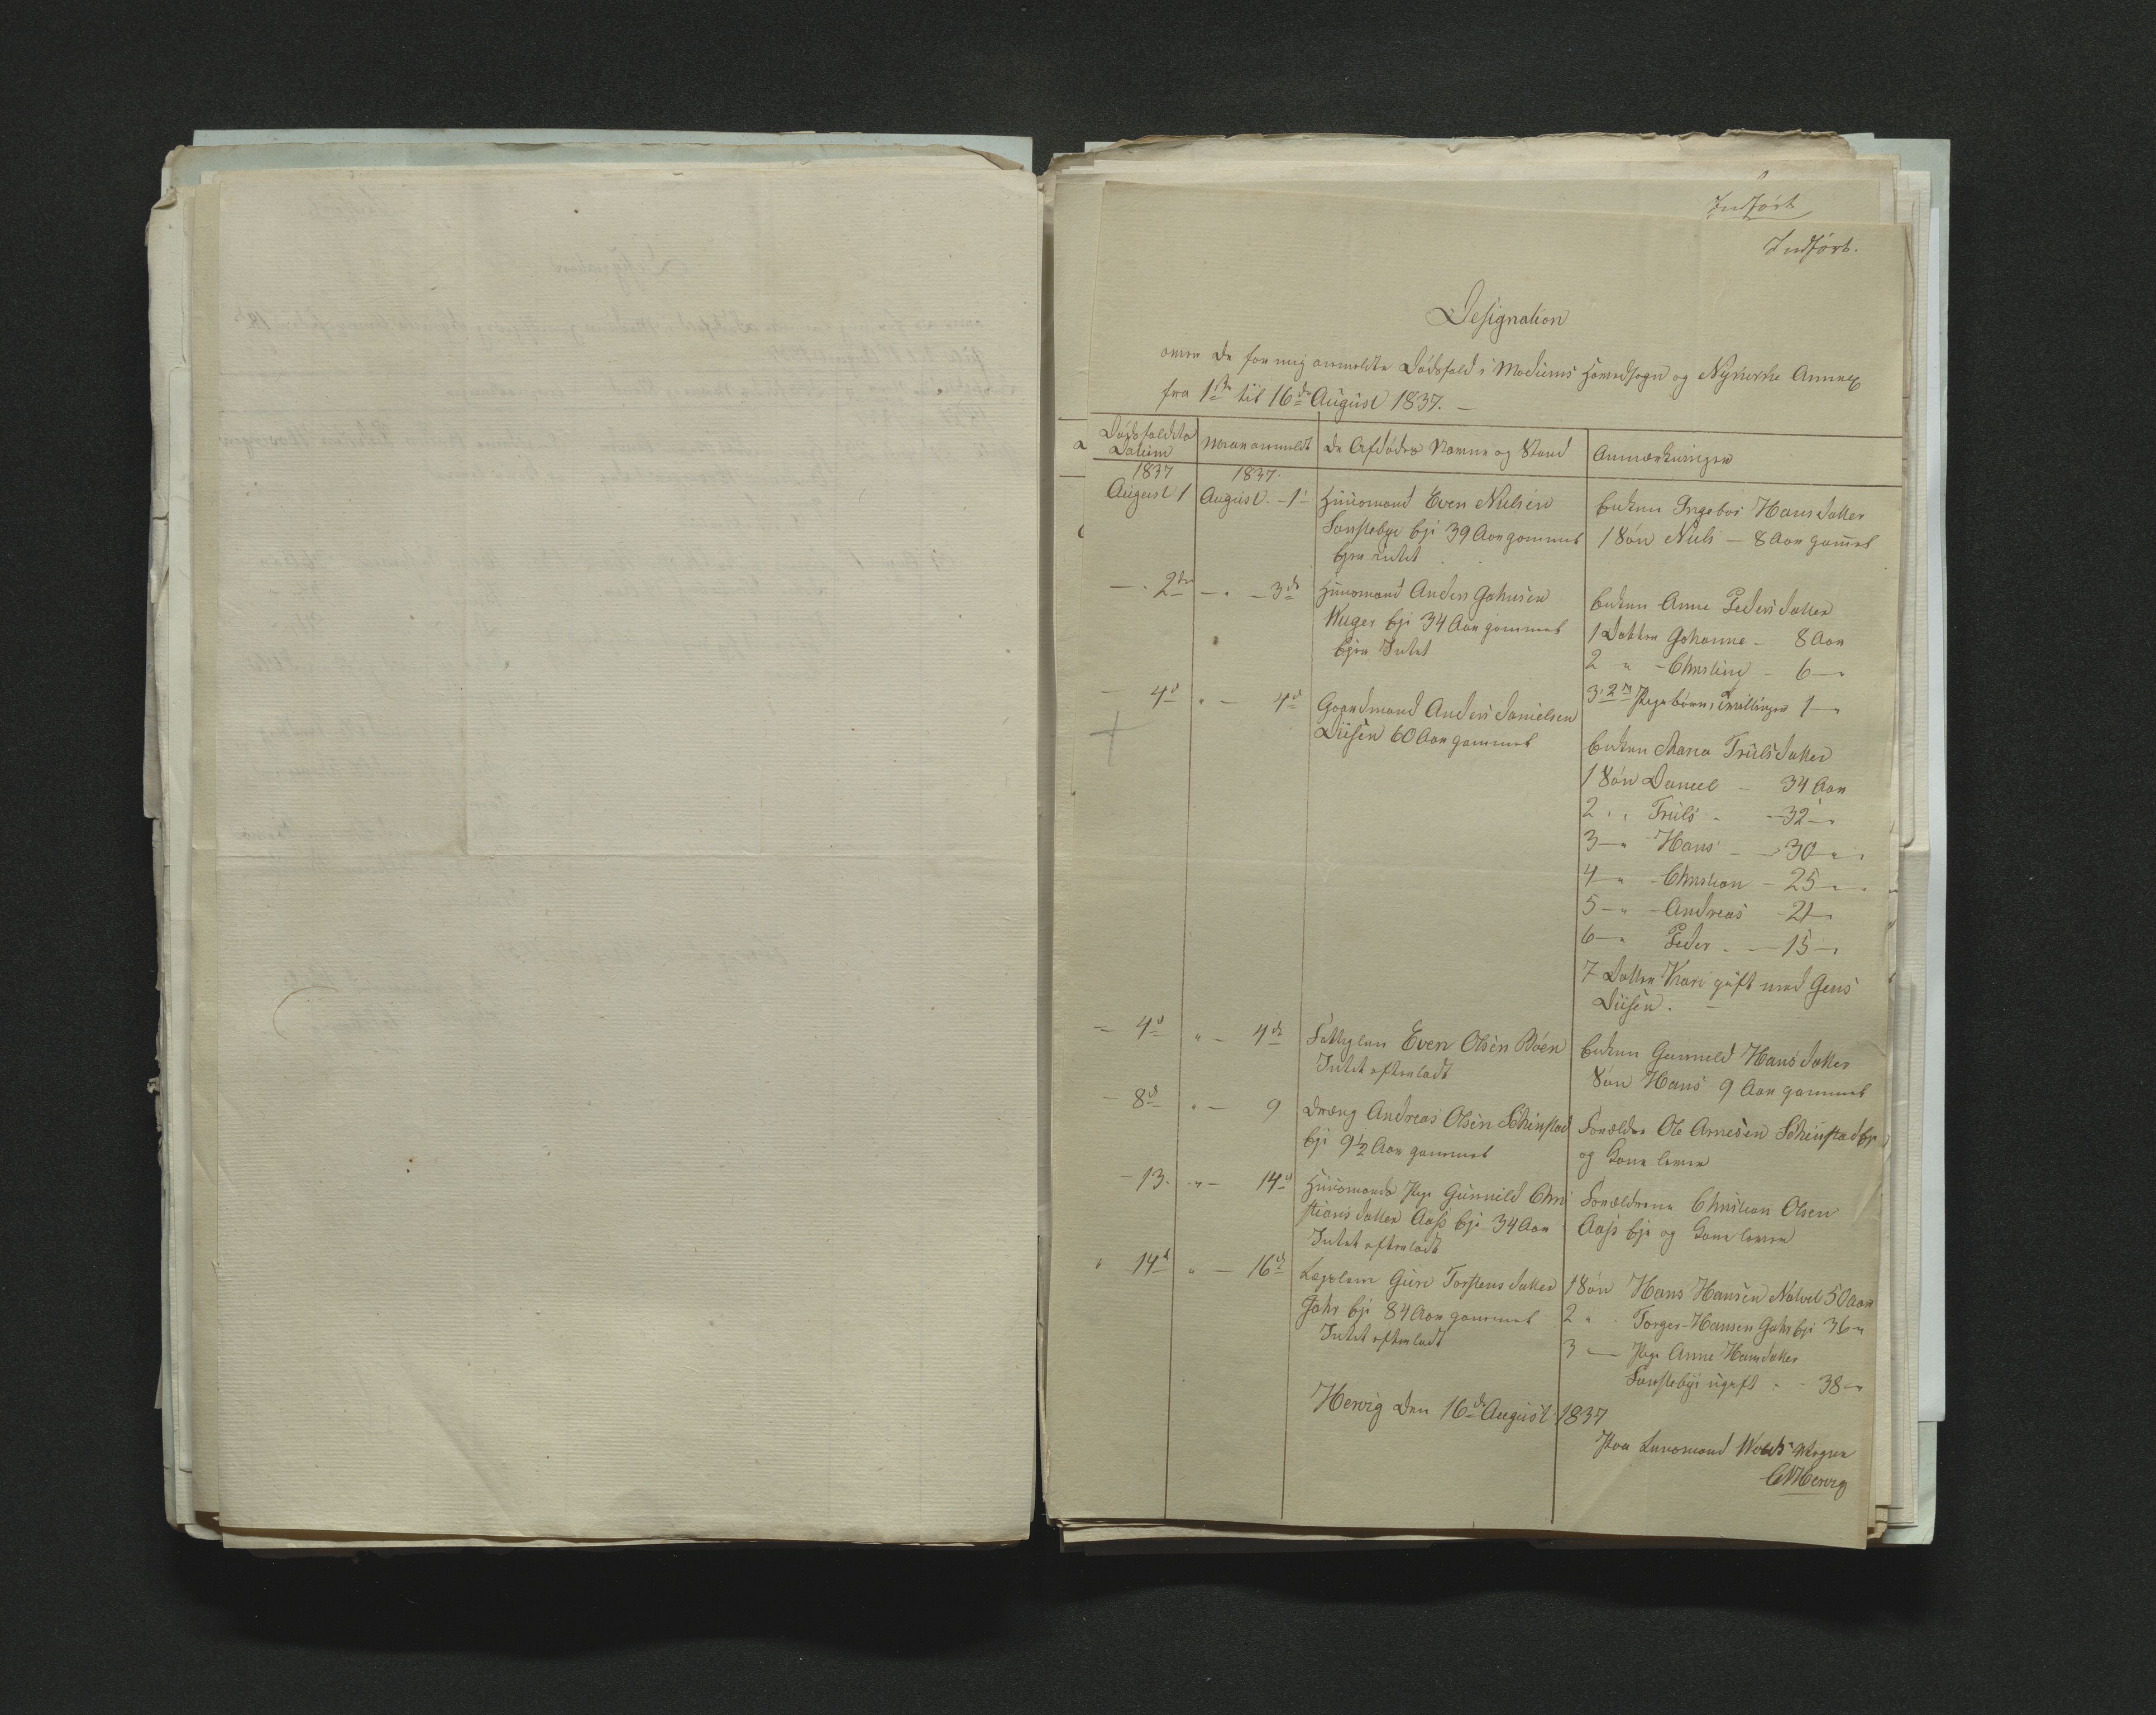 Indført
Indført.
Designation
over de for mig anmeldte Dødsfald i Modums Hovedsogn og Nykirke Annex
fra 1ste til 16de August 1837. —
Dødsfaldets Datum
Naar anmeldt
De Afdødes Navne og Stand
Anmærkninger
1837
1837.
August 1
August. - 1
Huusmand Even Nielsen
Sonstebye eje 39 Aar gammel
Enken Ingebor Hansdatter
1 Søn Niels — 8 Aar gammel
— " 2den — " — 3de
Huusmand Anders Johnsen
eje 34 Aar gammel
eier Intet
Enken Anne Pedersdatter
1 Datter Johanne — 8 Aar
2 " — Christine — 6 —
3. 2de Pigebørn, Tvillinger 1 —
— 4de " — 4de
Gaardmand Anders Danielsen
Diisen 60 Aar gammel
Enken Maria Trulsdatter
1 Søn Daniel — 34 Aar
2 " " Truls — 32 —
3 — " Hans — 30 —
4 " — Christian — 25 —
5 — " — Andreas — 21 —
6 — " Peder — 15 —
7 Datter Kari gift med Jens
Diisen. —
— 4de " — 4de
Fattiglem Even Olsen Bøen
Intet efterladt
Enken Gunnild Hansdatter
Søn Hans 9 Aar gammel
— 8de " — 9
Dreng Andreas Olsen Schinstad
eje 9½ Aar gammel
Forældre Ole Arnesen Schinstadeje
og Kone lever
— 13. " — 14de
Huusmands Pige Gunnild Chri
stiansdatter Aass eje 34 Aar
Intet efterladt
Forældrene Christian Olsen
Aass eje og Kone lever
" 14de " — 16de
Lægdlem Guri Torstensdatter
Gahr eje 84 Aar gammel
Intet efterladt
1 Søn Hans Hansen 50 Aar
2 " Torger Hansen Gahr eje 36 "
3 — Pige Anne Hansdatter
Sonstebye ugift — 38 —
Hervig den 16de August 1837
Paa Lensmand Vegne
Hervig